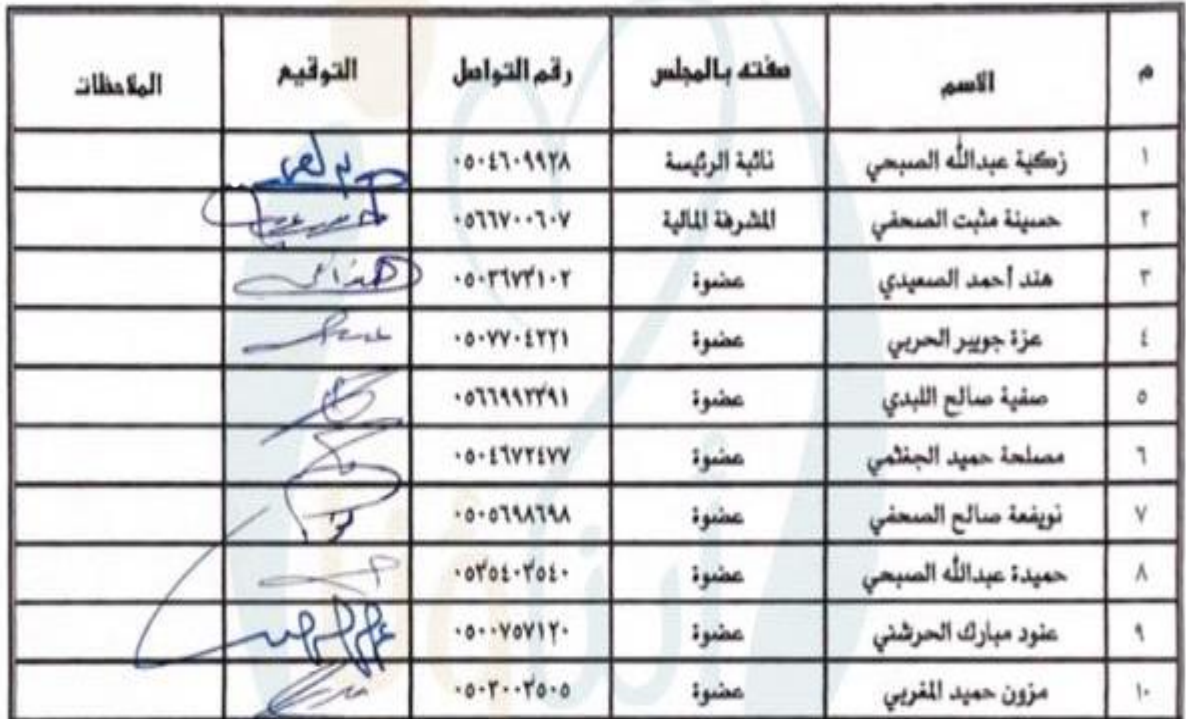 م الاسم صفته بالمجلس رقم التواصل التوقيع الملاحظات
١ زكية عبدالله الصبحي نائبة الرئيسة ٠٥٠٤٦٠٩٩٢٨
٢ حسينة مثبت الصحفي المشرفة المالية ٠٥٦٦٧٠٠٦٠٧
٣ هند أحمد الصعيدي عضوة ٠٥٠٣٦٧٣١٠٢
٤ عزة جويبر الحربي عضوة ٠٥٠٧٧٠٤٢٢١
٥ صفية صالح اللبدي عضوة ٠٥٦٦٩٩٢٣٩١
٦ مصلحة حميد الجغثمي عضوة ٠٥٠٤٦٧٢٤٧٧
٧ نويفعة صالح الصحفي عضوة ٠٥٠٥٦٩٨٦٩٨
٨ حميدة عبدالله الصبحي عضوة ٠٥٣٥٤٠٣٥٤٠
٩ عنود مبارك الحرشني عضوة ٠٥٠٠٧٥٧١٢٠
١٠ مزون حميد المغربي عضوة ٠٥٠٣٠٠٣٥٠٥